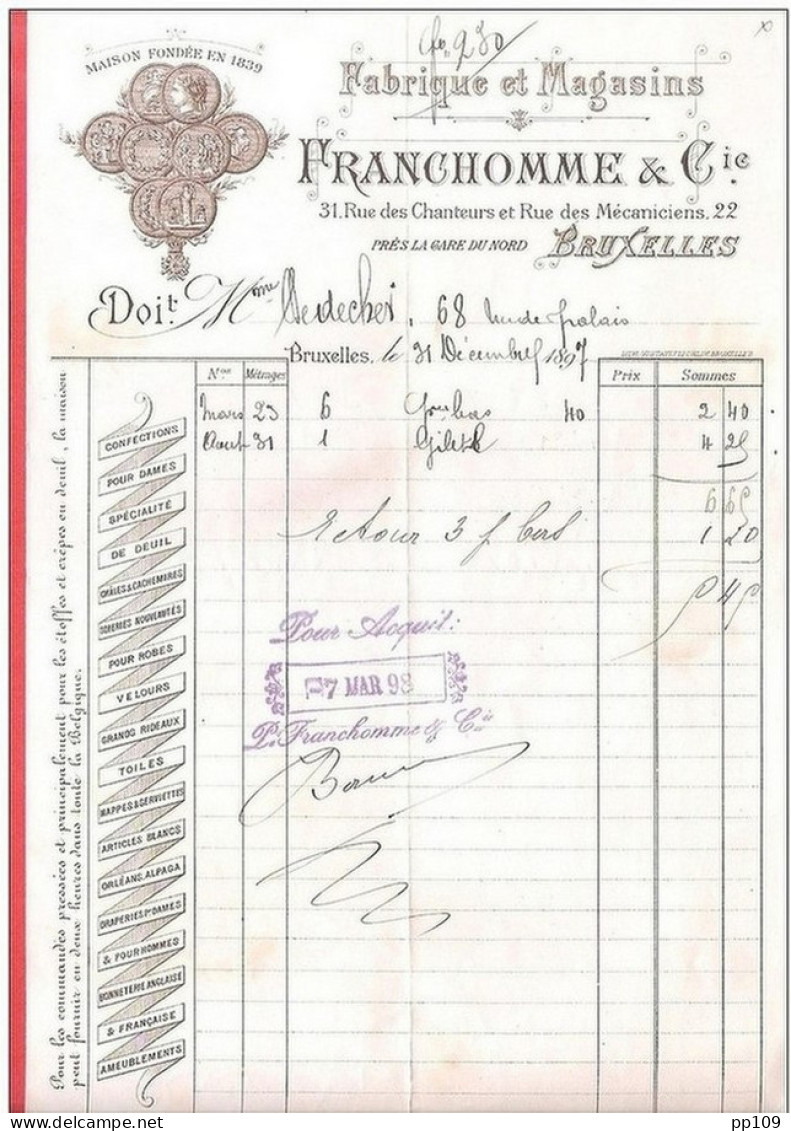 fo 230
x
MAISON FONDÉE EN 1839
Fabrique et Magasins
FRANCHOMME & Cie.
31. Rue des Chanteurs et Rue des Mécaniciens. 22
PRÈS LA GARE DU NORD BRUXELLES
Doit. Mme 68 rue de palais
Bruxelles, le 31 Décembre 1897
Nos Métrages Prix Sommes
Mars 23 6 bas 40 2 40
Aout 31 1 Gilet 4 25
6 65
Retour 3 p bas 1 20
5 45
CONFECTIONS
POUR DAMES
SPÉCIALITÉ
DE DEUIL
CHÂLES & CACHEMIRES
SOIERIES NOUVEAUTÉS
POUR ROBES
VELOURS
GRANDS RIDEAUX
TOILES
NAPPES & SERVIETTES
ARTICLES BLANCS
ORLÉANS, ALPAGA
DRAPERIES Pr DAMES
& POUR HOMMES
BONNETERIE ANGLAISE
& FRANÇAISE
AMEUBLEMENTS
Pour les commandes pressées et principalement pour les étoffes et crêpes ou deuil, la maison
peut fournir en deux heures dans toute la Belgique.
Pour Acquit:
17 MAR 98
P. Franchomme & Cie
pp109